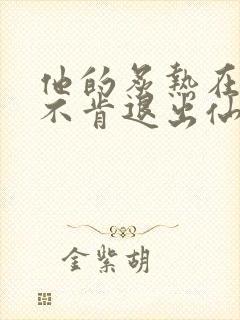 他的炙熱在
不肯退出仙
金紫胡